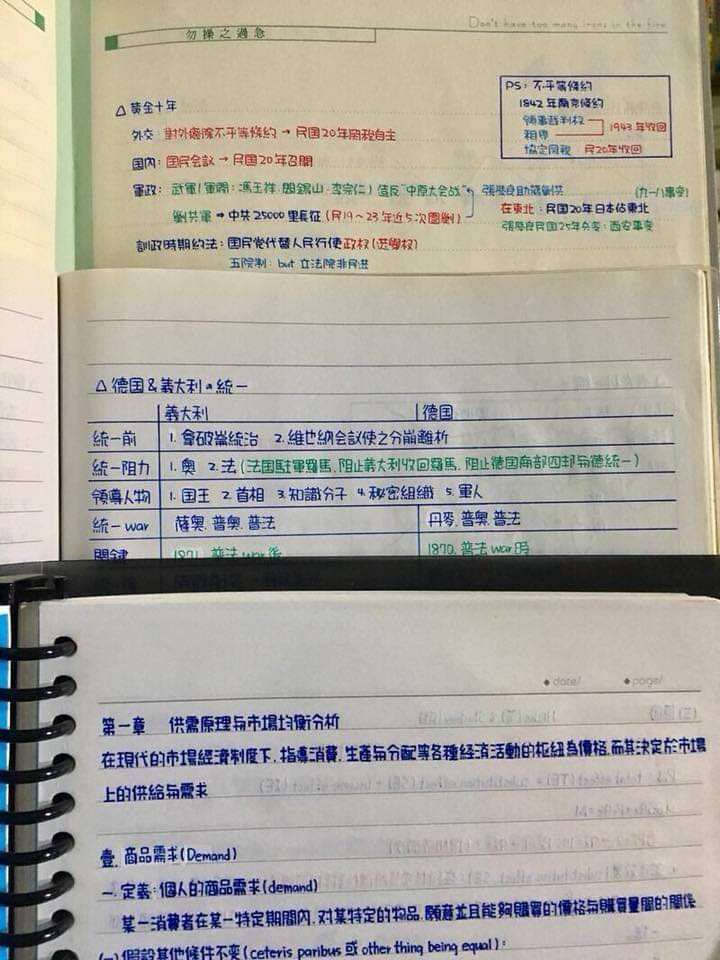 Don't have too many irons in the fire
勿操之過急
PS: 不平等條約
1842年南京條約
領事裁判权
租界
1943年收回
協定関税 民20年收回
△ 黄金十年
外交: 對外廢除不平等條約 → 民国20年関税自主
国内: 国民会議 → 民国20年召開
軍政: 武軍(軍閥: 馮玉祥、閻錫山、李宗仁) 造反"中原大会战" 張學良助蔣
(九一八事变)
剿共軍 → 中共25000里長征 (民19～23年近5次圍剿)
在東北: 民国20年日本佔東北
張學良民国25年兵变: 西安事变
訓政時期約法: 国民党代替人民行使政权(选舉权)
五院制: but 立法院非民選
△ 德国 & 義大利の統一
義大利 德国
統一前 1. 拿破崙統治 2. 維也納会议使之分崩離析
統一阻力 1. 奥 2. 法 (法国駐軍羅馬, 阻止義大利收回羅馬, 阻止德国南部四邦与德統一)
領導人物 1. 国王 2. 首相 3. 知識分子 4. 秘密組織 5. 軍人
統一 war 薩奥, 普奥, 普法 丹麥, 普奥, 普法
関鍵 1871, 普法 war 後 1870, 普法 war 時
date/ page/
第一章 供需原理与市場均衡分析
在現代的市場經濟制度下, 指導消費, 生產与分配等各種経済活動的枢紐為價格, 而其決定於市場
上的供給与需求
壹. 商品需求(Demand)
一. 定義: 個人的商品需求(demand)
某一消費者在某一特定期間內, 対某特定的物品, 願意並且能夠購買的價格与購買量間的關係
(一)假設其他條件不変(ceteris paribus 或 other thing being equal):